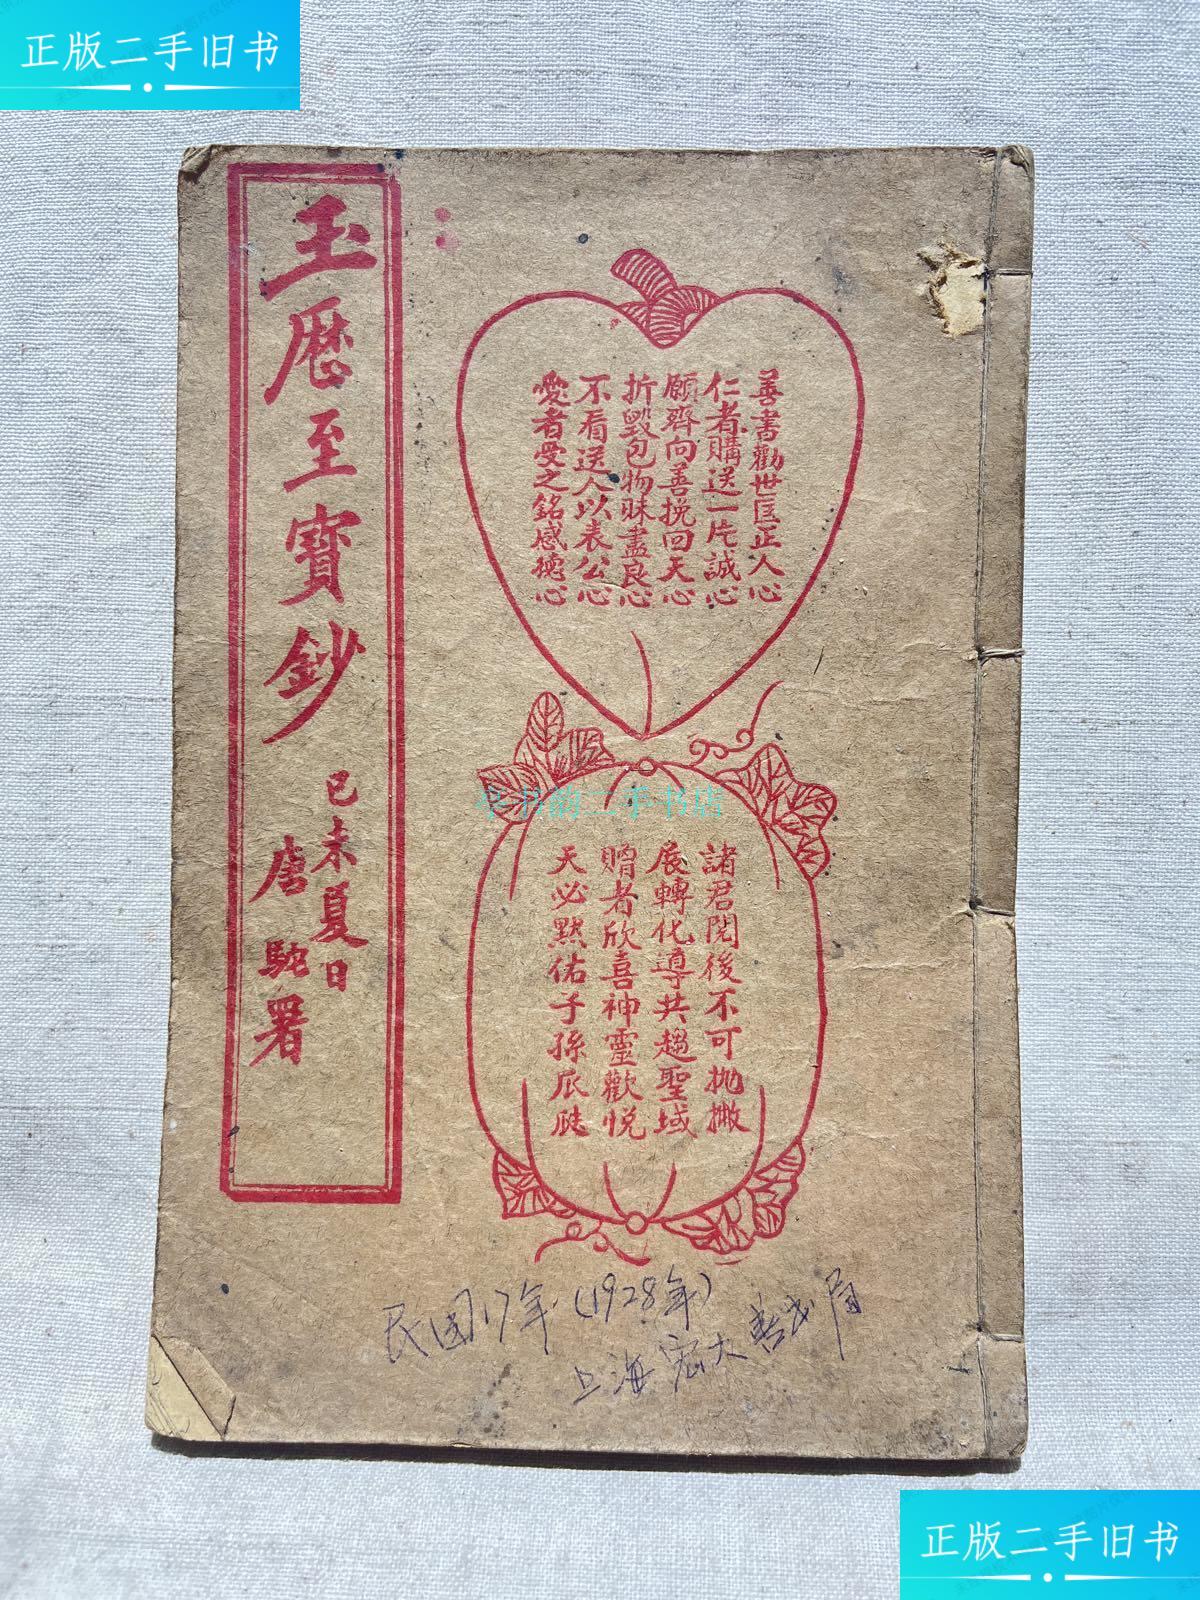 正版二手旧书
玉曆至寶鈔
己未夏日
唐駝署
善書勸世匡正人心
仁者購送一片誠心
願齊向善挽回天心
折毀包物昧盡良心
不看送人以表公心
愛者受之銘感德心
書韵二手书店
諸君閱後不可拋撇
展轉化導共趨聖域
贈者欣喜神靈歡悅
天必默佑子孫瓜瓞
民国17年(1928年)
上海宏大善书局
正版二手旧书